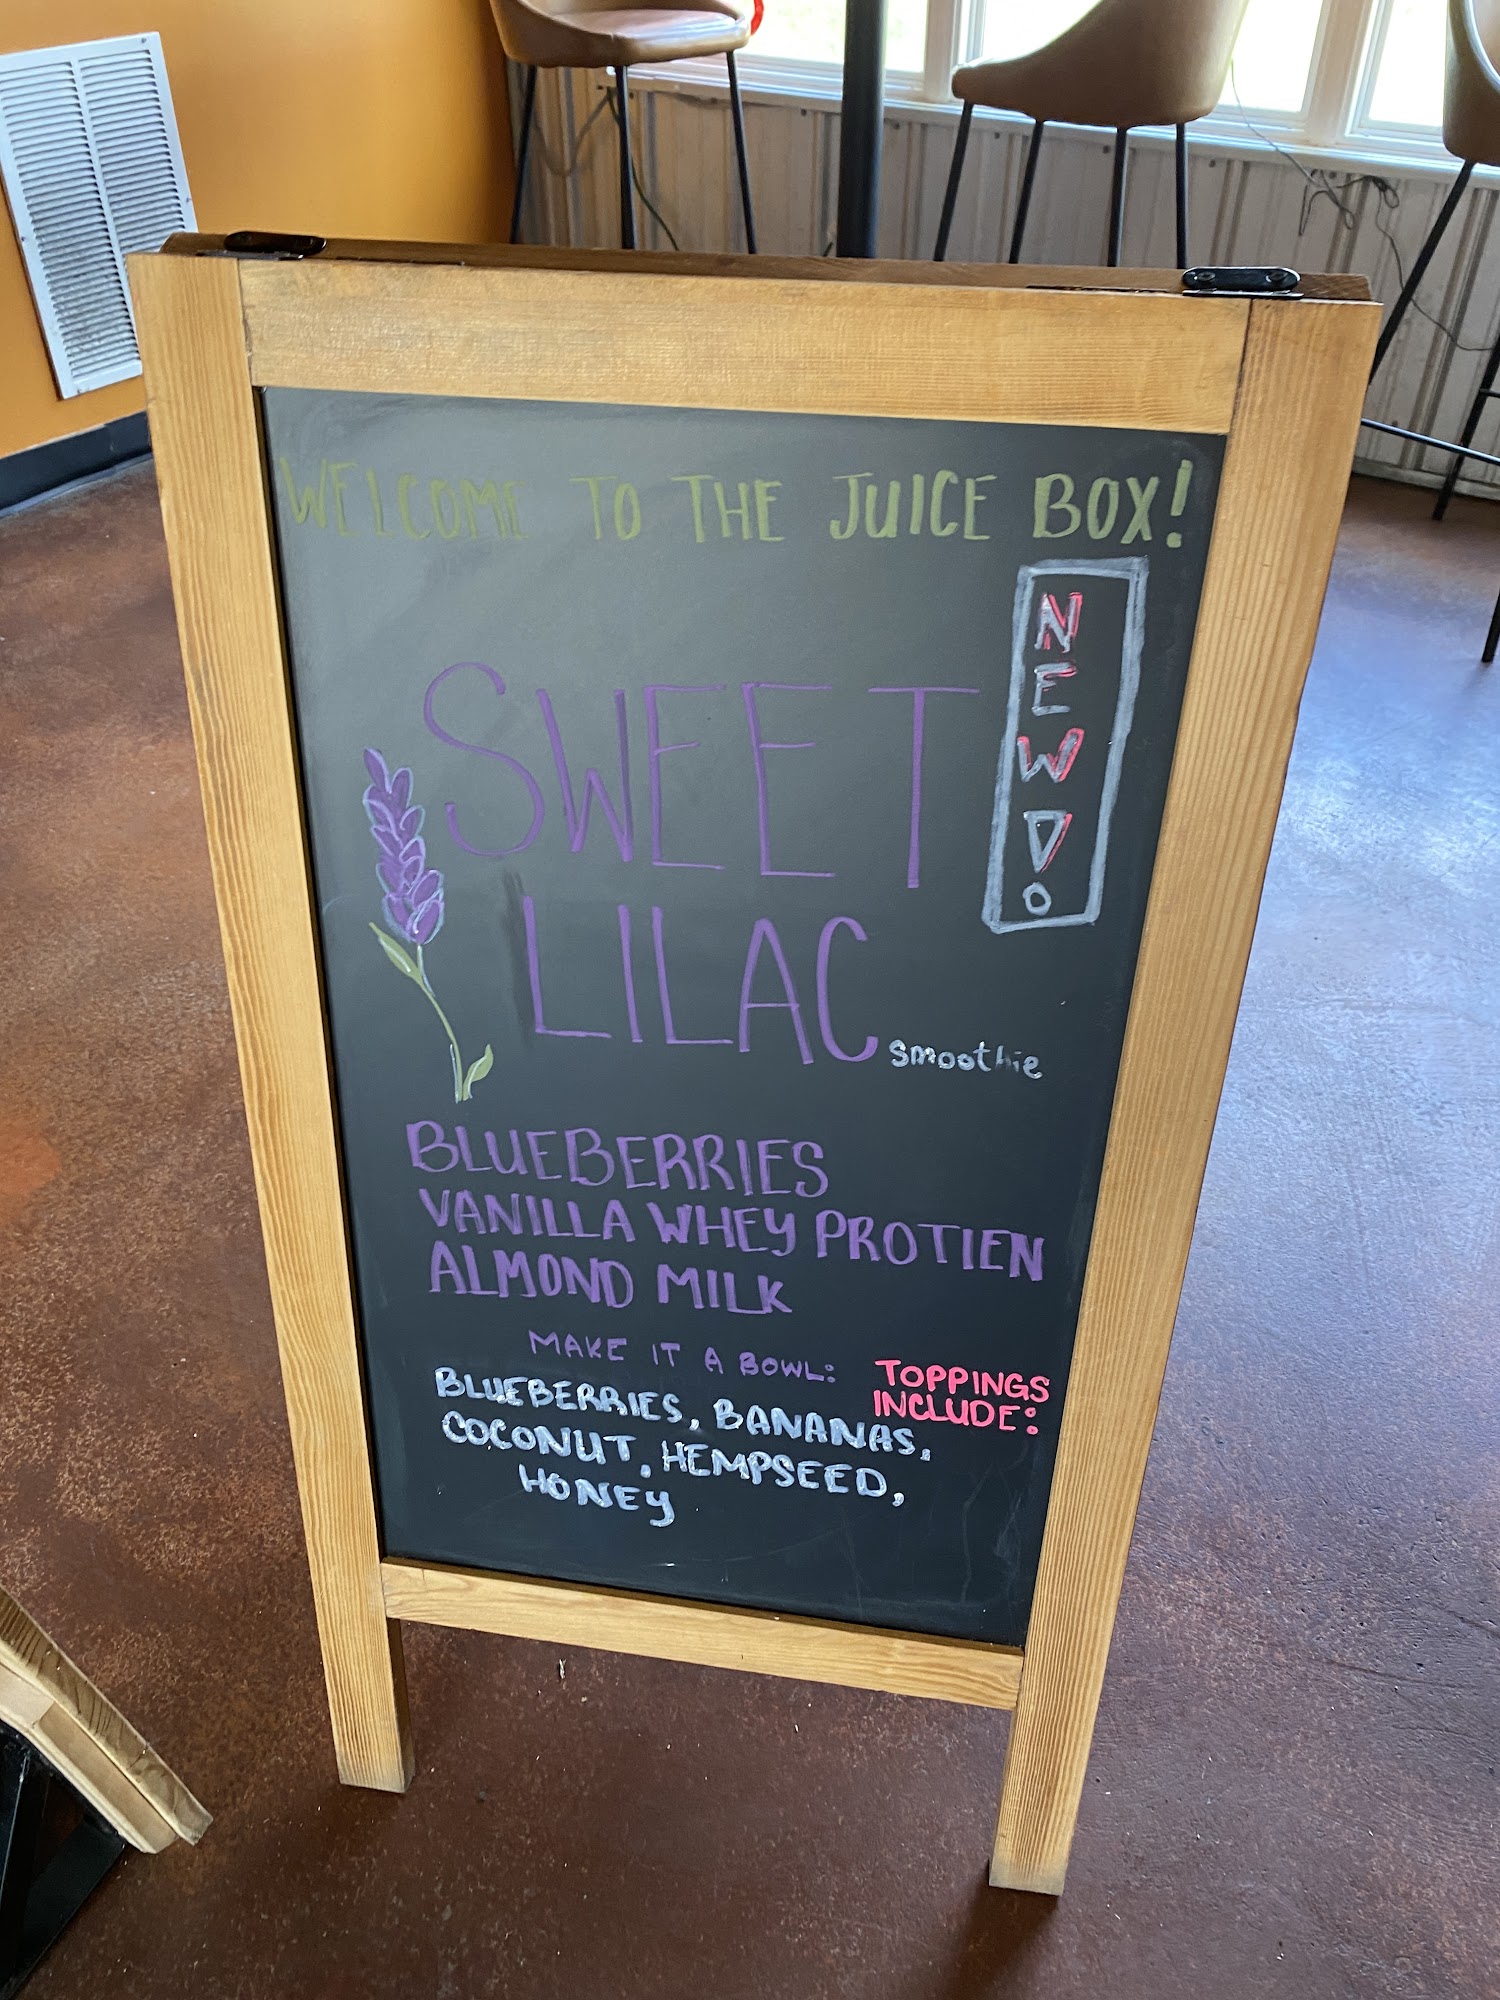 WELCOME TO THE JUICE BOX!
NEW!
SWEET
LILAC
smoothie
BLUEBERRIES
VANILLA WHEY PROTIEN
ALMOND MILK
MAKE IT A BOWL:
TOPPINGS
INCLUDE:
BLUEBERRIES, BANANAS,
COCONUT, HEMPSEED,
HONEY